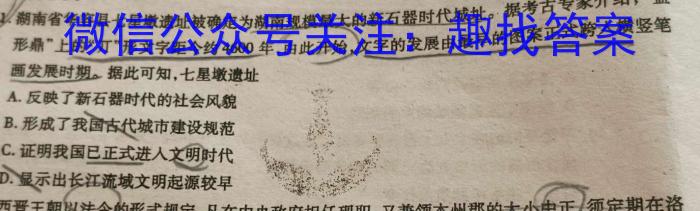 湖南省华容县七星墩遗址被确定为湖南规模最大的新石器时代城址。据考古专家介绍,
形鼎"上的"丁"形文字距今约4600年,由此开始,文字的发展由 的图案正式跨 横竖笔
微信公众号关注:趣找答案
画发展时期。据此可知,七星墩遗址
A. 反映了新石器时代的社会风貌
B. 形成了我国古代城市建设规范
C. 证明我国已正式进入文明时代
D. 显示出长江流域文明起源较早
西晋王朝以法令的形式规定,凡在中央政府担任现职、又兼领本州郡的大小中正,须定期在洛